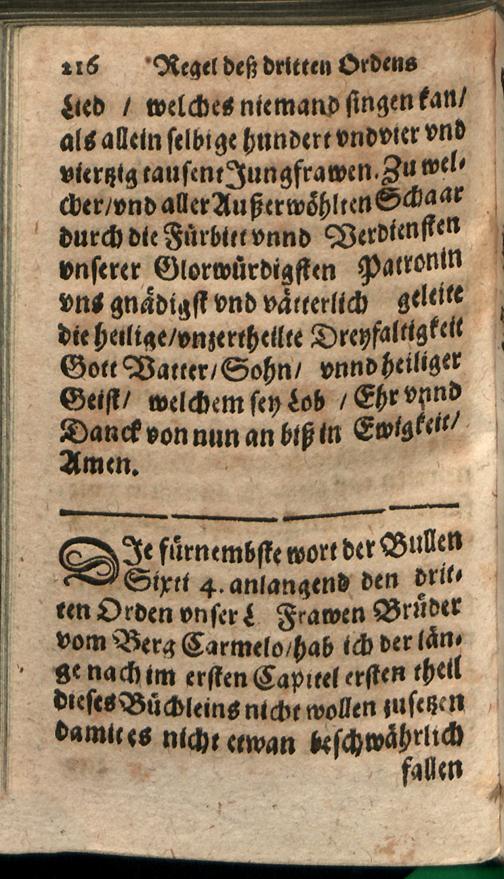 216 Regel deß dritten Ordens
Lied / welches niemand singen kan/
als allein selbige hundert vnd vier vnd
viertzig tausent Jungfrawen. Zu wel-
cher/vnd aller Außerwöhlten Schaar
durch die Fürbitt vnnd Verdiensten
vnserer Glorwürdigsten Patronin
vns gnädigst vnd vätterlich geleite
die heilige/vnzertheilte Dreyfaltigkeit
Gott Vatter/Sohn/ vnnd heiliger
Geist/ welchem sey Lob / Ehr vnnd
Danck von nun an biß in Ewigkeit/
Amen.
DIe fürnembste wort der Bullen
Sixti 4. anlangend den drit-
ten Orden vnser L Frawen Brüder
vom Berg Carmelo/hab ich der län-
ge nach im ersten Capitel ersten theil
dieses Büchleins nicht wollen zusetzen
damit es nicht etwan beschwährlich
fallen